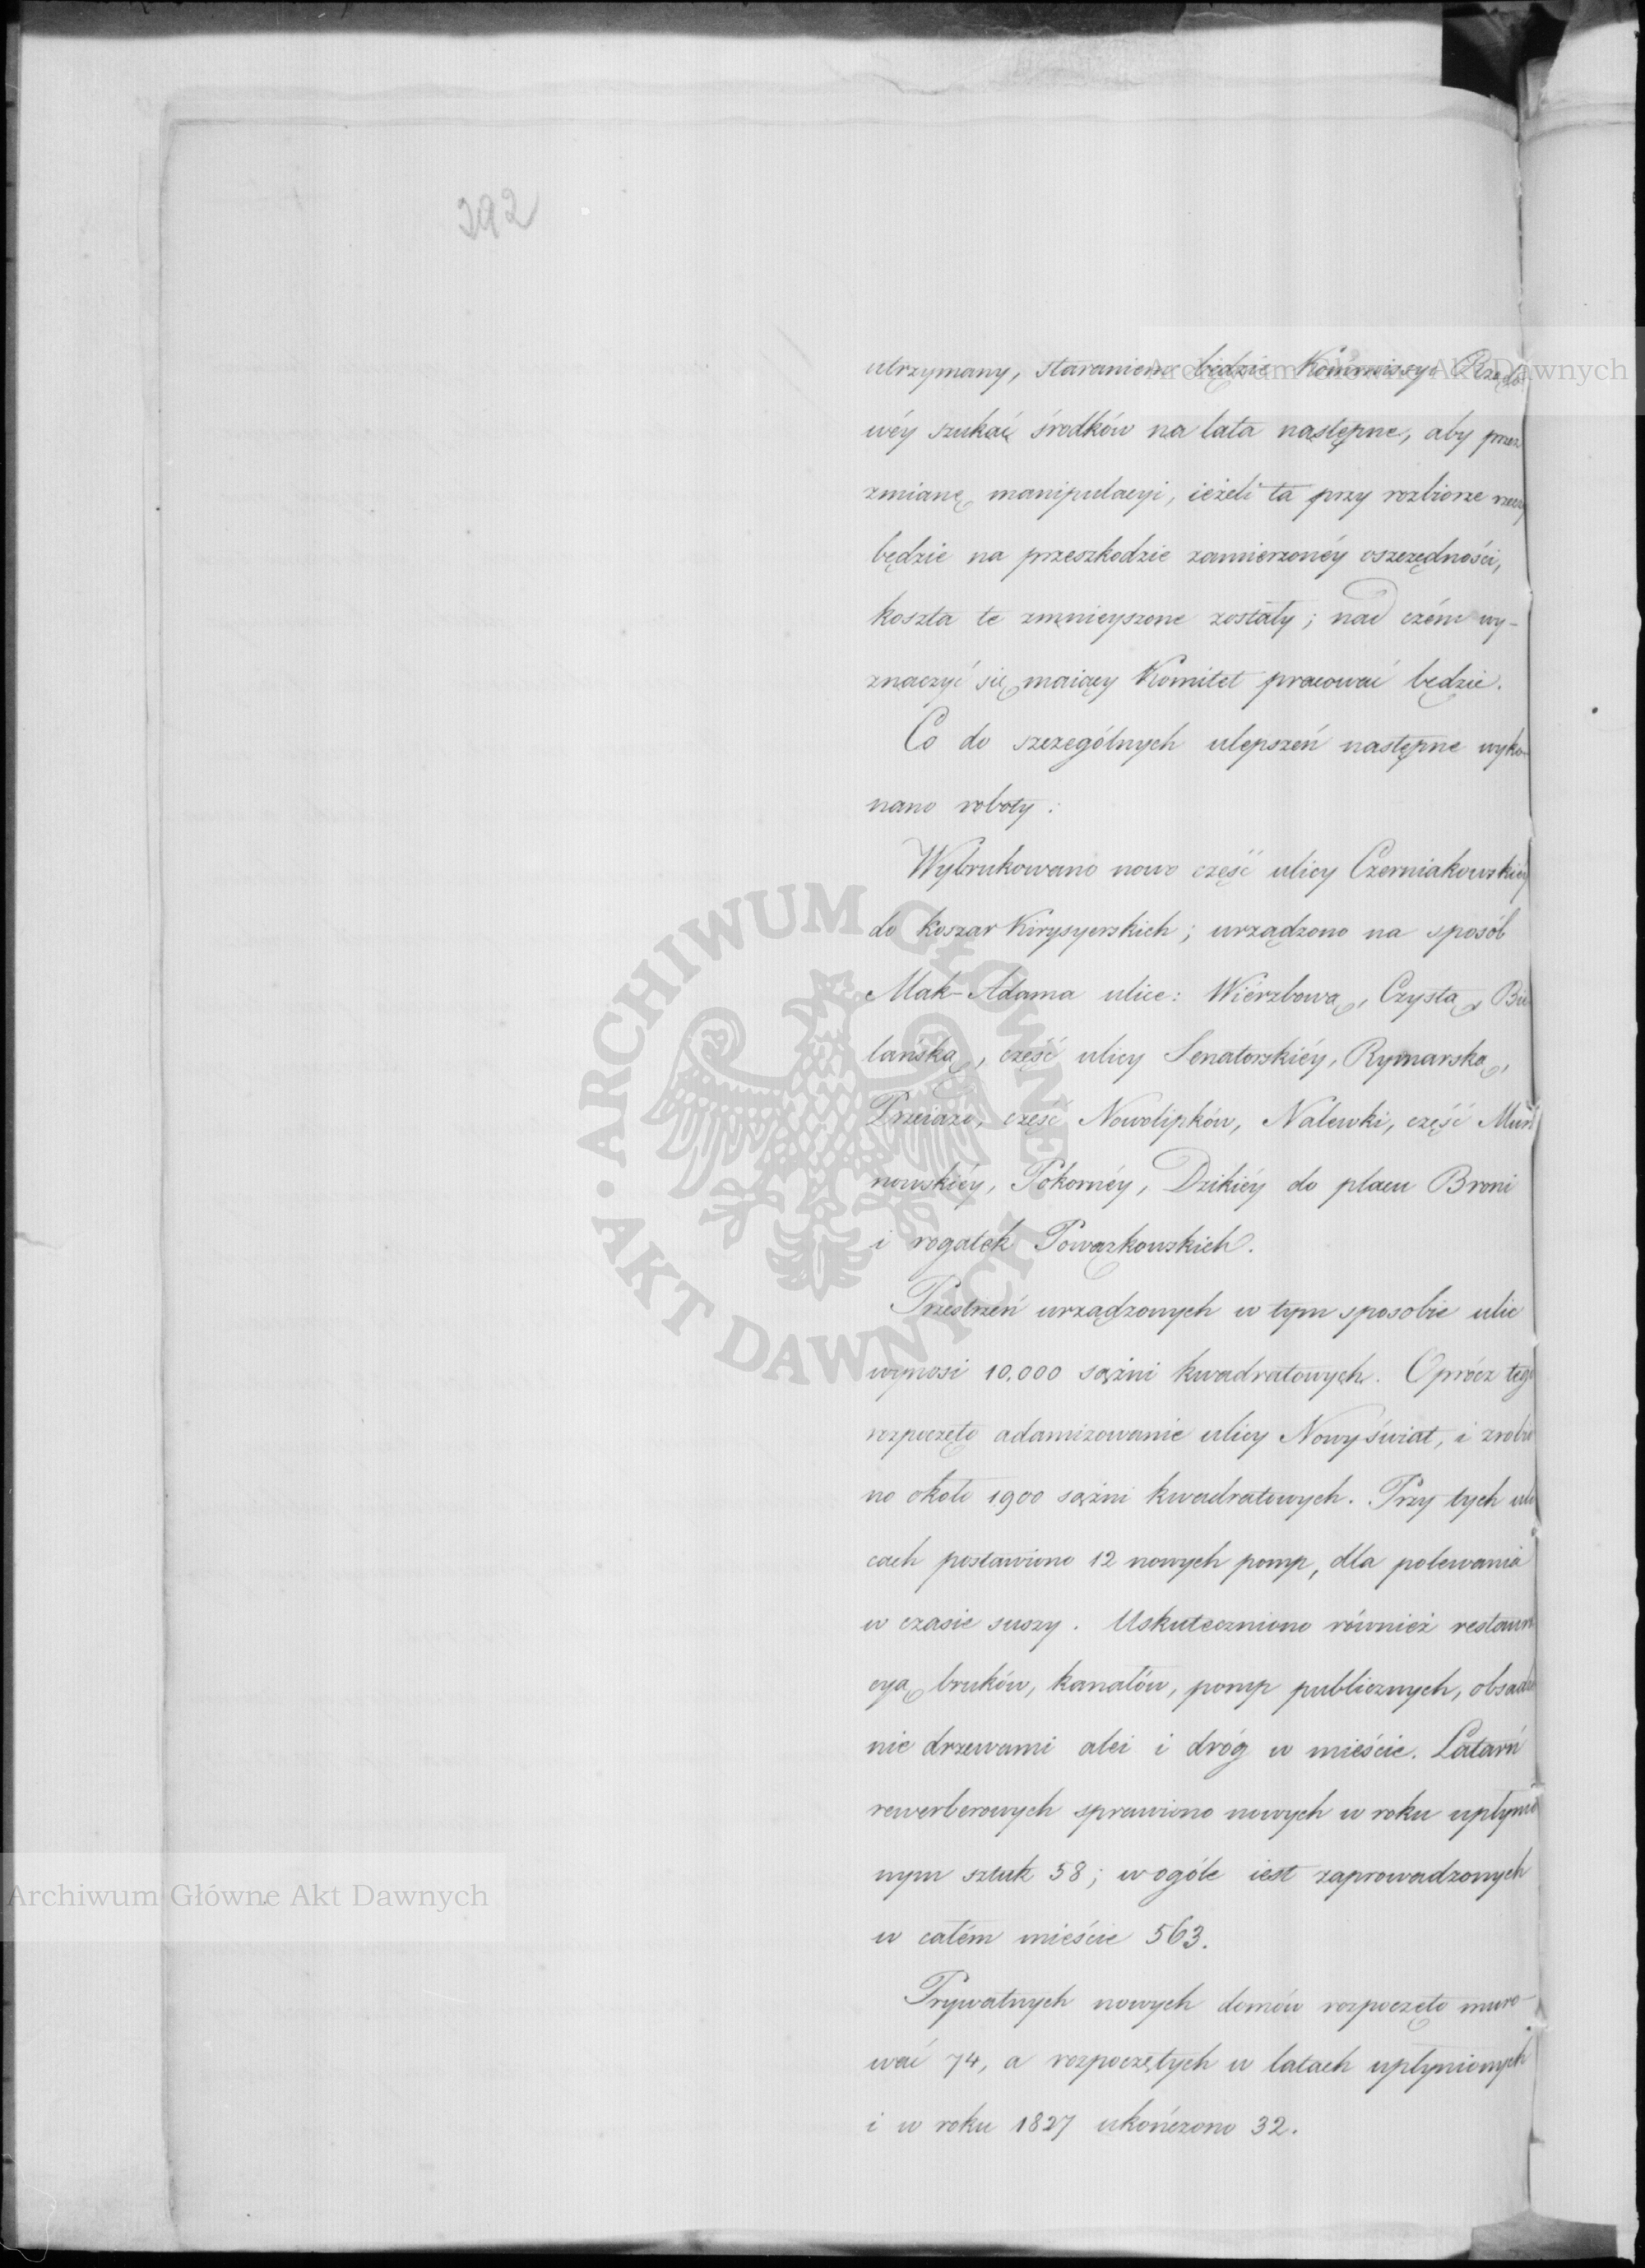 392
utrzymany, staraniem będzie Kommissyi Rządo
wéy szukać środków na lata następne, aby przez
zmianę manipulacyi, ieżeli ta przy rozbiorze rzeczy
będzie na przeszkodzie zamierzonéy oszczędności,
koszta te zmnieyszone zostały; nad czém wy-
znaczyć się maiący Komitet pracować będzie.
Co do szczególnych ulepszeń następne wyko-
nano roboty:
Wybrukowano nowo część ulicy Czerniakowskiéy
do koszar Kirysyerskich; urządzono na sposób
Mak-Adama ulice: Wierzbową, Czystą, Bie
lańską, część ulicy Senatorskiéy, Rymarską,
Przeiazd, część Nowolipków, Nalewki, część Mura
nowskiéy, Pokornéy, Dzikiéy do placu Broni
i rogatek Powązkowskich.
Przestrzeń urządzonych w tym sposobie ulic
wynosi 10,000 sążni kwadratowych. Oprócz tego
rozpoczęto adamizowanie ulicy Nowy świat, i zrobio
no około 1900 sążni kwadratowych. Przy tych uli
cach postawiono 12 nowych pomp, dla polewania
w czasie suszy. Uskuteczniono również restaura
cyą bruków, kanałów, pomp publicznych, obsadze
nie drzewami alei i dróg w mieście. Latarń
rewerberowych sprawiono nowych w roku upłynio
nym sztuk 58; w ogóle iest zaprowadzonych
w całém mieście 563.
Prywatnych nowych domów rozpoczęto muro-
wać 74, a rozpoczętych w latach upłynionych
i w roku 1827 ukończono 32.
Archiwum Główne Akt Dawnych
ARCHIWUM GŁÓWNE · AKT DAWNYCH ·
Archiwum Główne Akt Dawnych